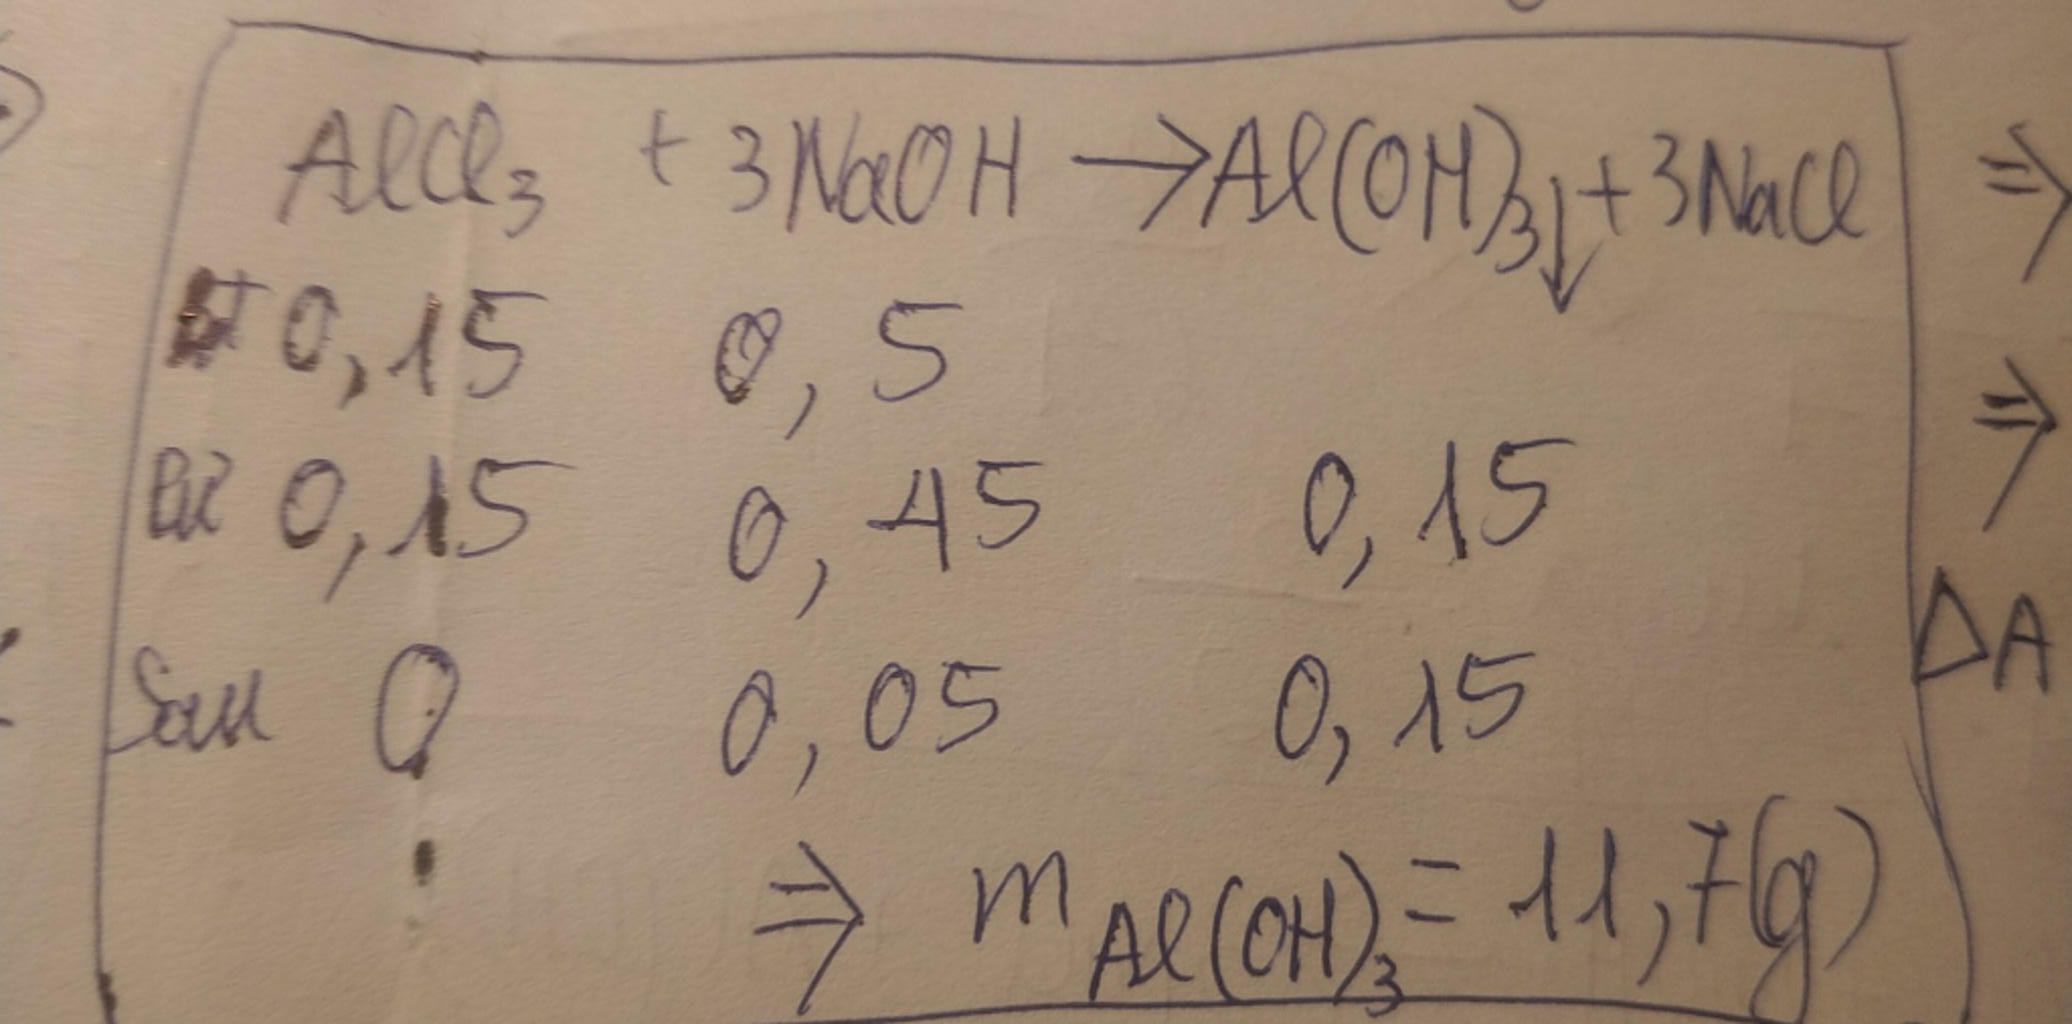 AlCl₃ + 3NaOH → Al(OH)₃↓ + 3NaCl ⇒
0,15 0,5
0,15 0,45 0,15 ⇒
Sau 0 0,05 0,15 ΔA
⇒ m Al(OH)₃ = 11,7(g)